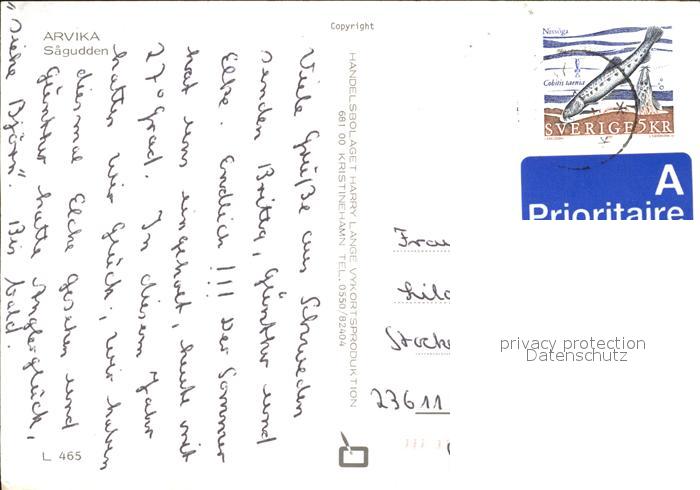 ARVIKA
Sågudden
Copyright
Viele Grüße aus Schweden
senden Britta, Günther und
Elke. Endlich!!! Der Sommer
hat uns eingeholt, heute mit
27° Grad. In diesem Jahr
hatten wir Glück, wir haben
diesmal Elche gesehen und
Günther hatte Anglerglück,
"siehe Björn". Bis bald.
L 465
HANDELSBOLAGET HARRY LANGE VYKORTSPRODUKTION
681 00 KRISTINEHAMN TEL. 0550/82404
Nissöga
Cobitis taenia
SVERIGE 5 KR
A
Prioritaire
Frau
23611
privacy protection
Datenschutz